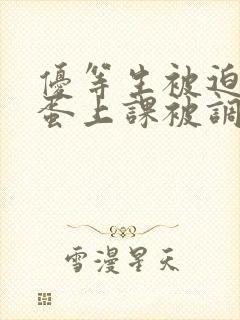 優等生被迫
蛋上課被調
雪漫星天